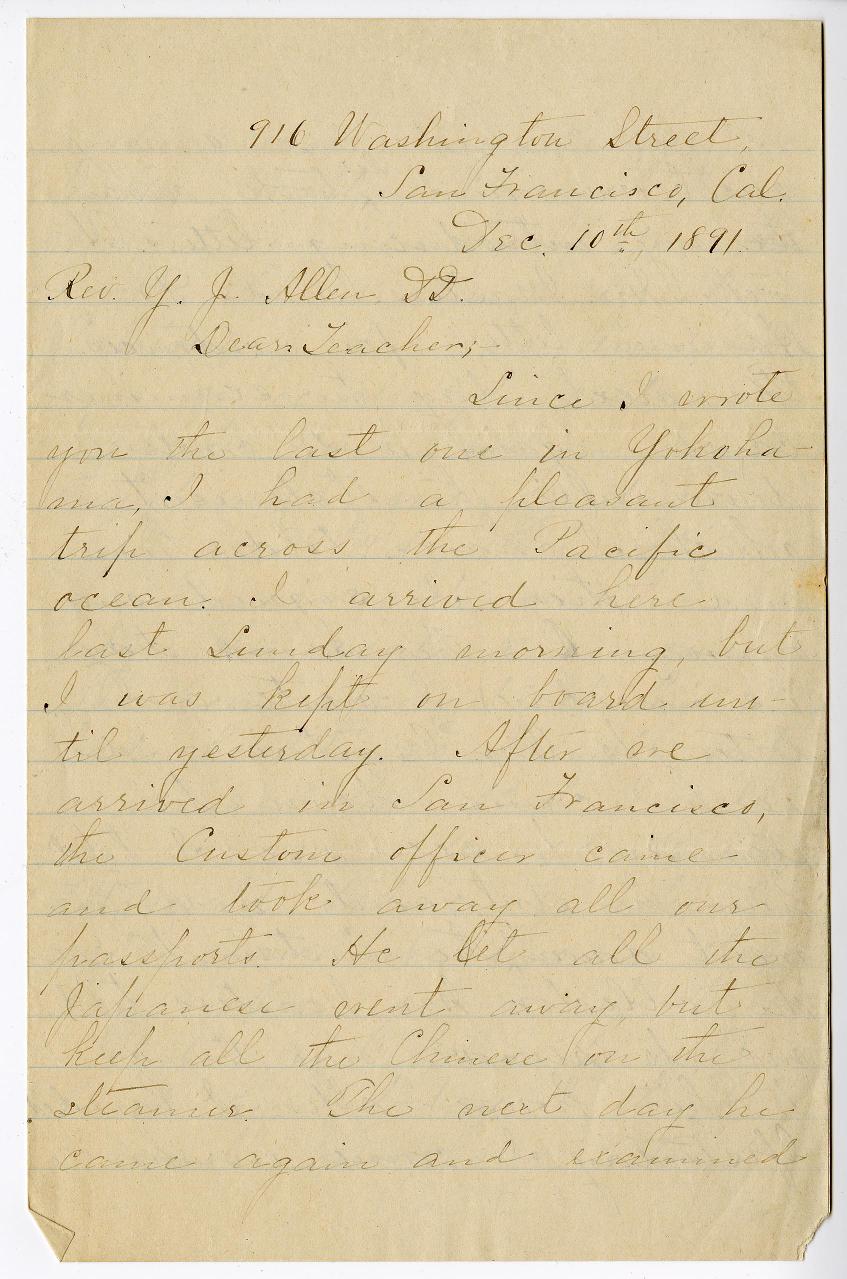 916 Washington Street,
San Francisco, Cal.
Dec. 10th, 1891.
Rev. Y. J. Allen DD.
Dear Teacher;-
Since I wrote
you the last one in Yokoha-
ma, I had a pleasant
trip across the Pacific
ocean. I arrived here
last Sunday morning, but
I was kept on board un-
til yesterday. After we
arrived in San Francisco,
the Custom officer came
and took away all our
passports. He let all the
Japanese went away, but
keep all the Chinese on the
steamer. The next day he
came again and examined